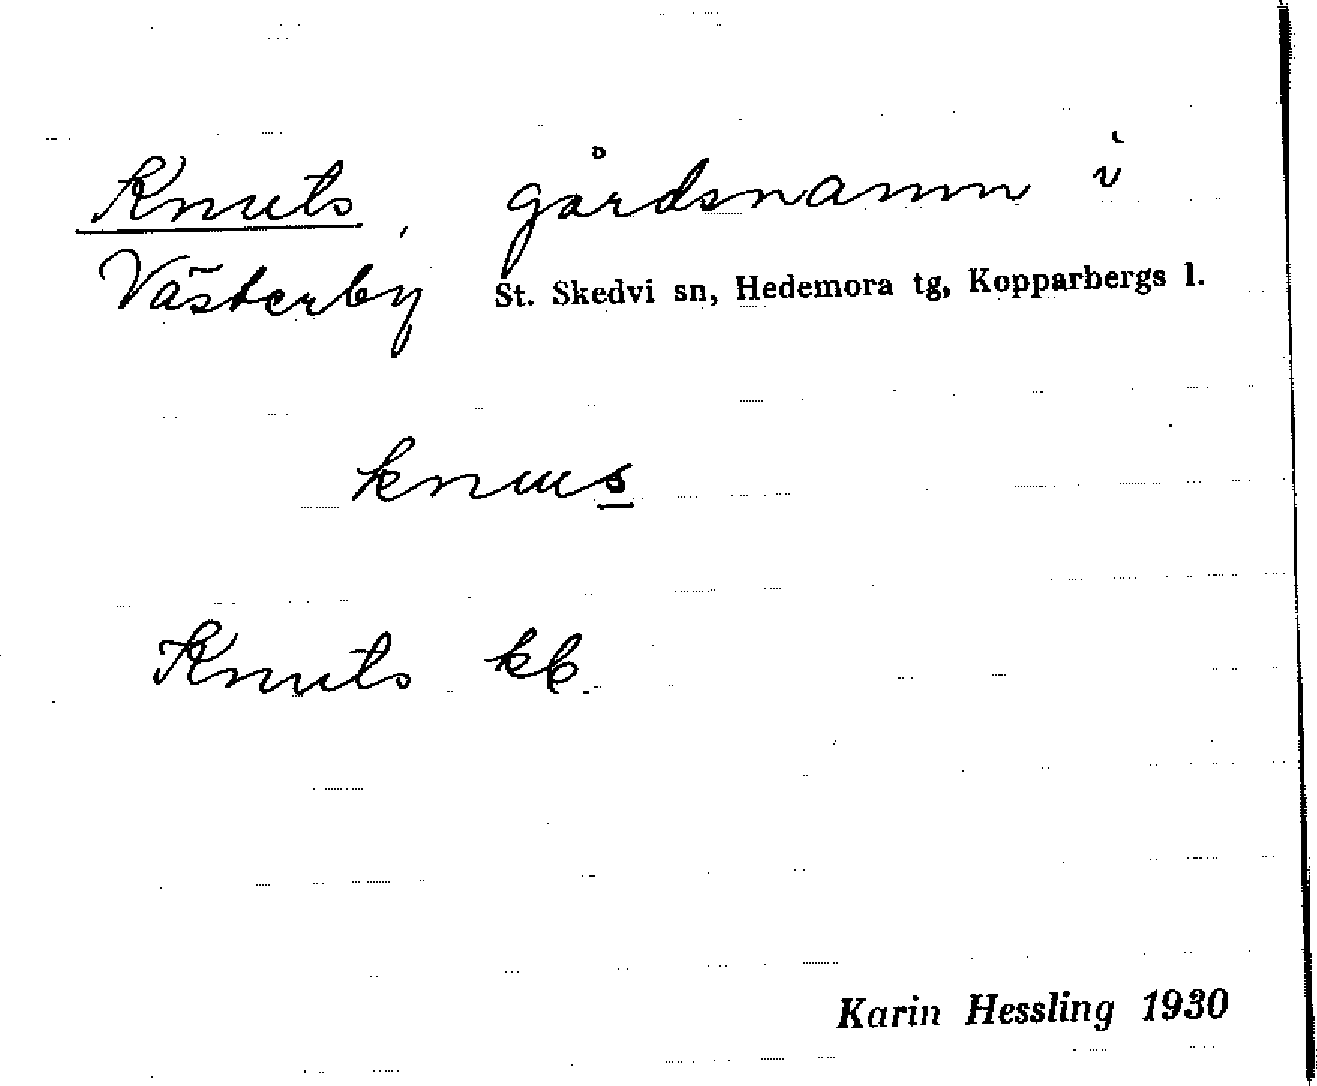 Knuts, gårdsnamn i
Västerby St. Skedvi sn, Hedemora tg, Kopparbergs l.
knuus
Knuts kb.
Karin Hessling 1930